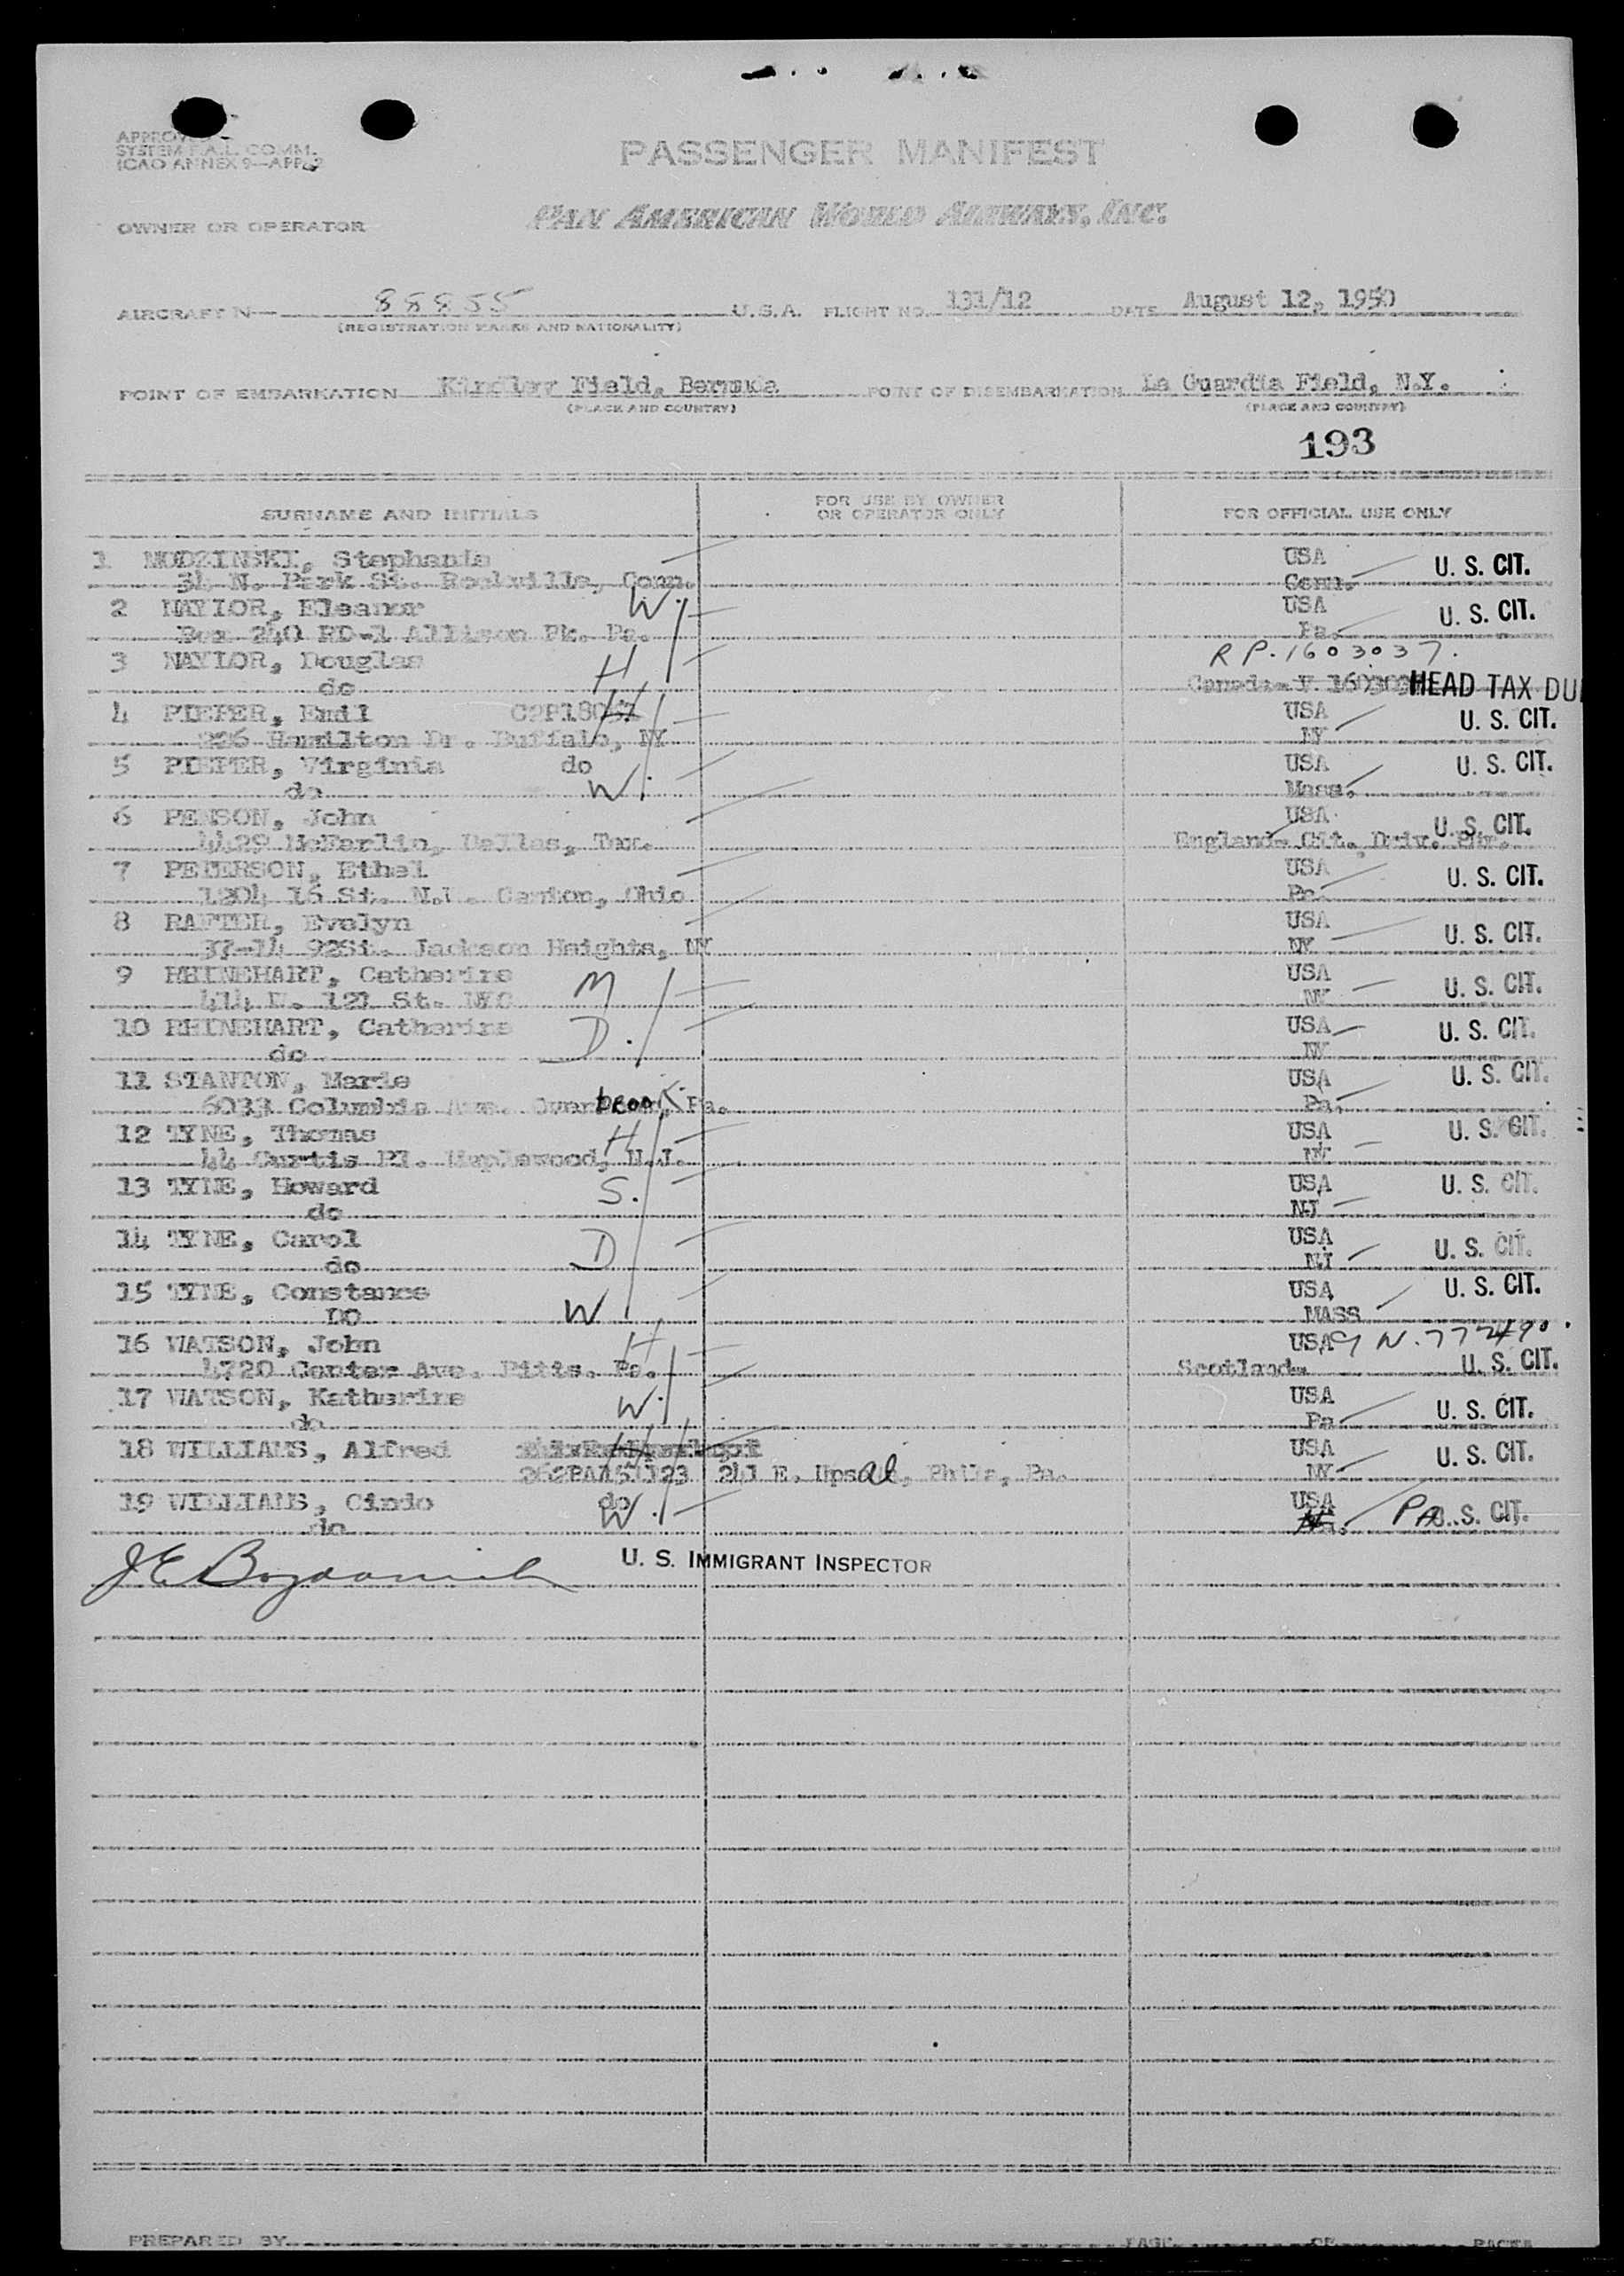 APPROVED
SYSTEM F.A.L. COMM.
ICAO ANNEX 9—APP. 2
PASSENGER MANIFEST
OWNER OR OPERATOR
PAN AMERICAN WORLD AIRWAYS, INC.
AIRCRAFT N— 88855 U.S.A. FLIGHT NO. 131/12 DATE August 12, 1950
(REGISTRATION MARKS AND NATIONALITY)
POINT OF EMBARKATION Kindley Field, Bermuda POINT OF DISEMBARKATION La Guardia Field, N.Y.
(PLACE AND COUNTRY) (PLACE AND COUNTRY)
193
SURNAME AND INITIALS FOR USE BY OWNER OR OPERATOR ONLY FOR OFFICIAL USE ONLY
1 MODZINSKI, Stephanie USA U. S. CIT.
34 N. Park St. Rockville, Conn. Conn.
2 NAYLOR, Eleanor W. USA U. S. CIT.
Box 240 RD-1 Allison Pk. Pa. Pa.
3 NAYLOR, Douglas H RP. 1603037.
do Canada V HEAD TAX DU
4 PIEPER, Emil H USA U. S. CIT.
226 Hamilton Dr. Buffalo, NY NY
5 PIEPER, Virginia do USA U. S. CIT.
do W. Mass.
6 PENSON, John USA U. S. CIT.
4429 McFarlin, Dallas, Tex. England Cit.
7 PETERSON, Ethel USA U. S. CIT.
1204 16 St. N.W. Canton, Ohio Pa.
8 RAFTER, Evelyn USA U. S. CIT.
37-14 92St. Jackson Heights, NY NY
9 RHINEHART, Catherine M USA U. S. CIT.
414 W. 121 St. NYC NY
10 RHINEHART, Catherine D. USA U. S. CIT.
do NY
11 STANTON, Marie USA U. S. CIT.
6033 Columbia Ave. Overbrook, Pa. Pa.
12 TYNE, Thomas H USA U. S. CIT.
44 Curtis Pl. Maplewood, N.J.
13 TYNE, Howard S. USA U. S. CIT.
do NJ
14 TYNE, Carol D USA U. S. CIT.
do NJ
15 TYNE, Constance USA U. S. CIT.
DO W MASS
16 WATSON, John H USA
4720 Center Ave. Pitts. Pa. Scotland U. S. CIT.
17 WATSON, Katherine W. USA U. S. CIT.
do Pa
18 WILLIAMS, Alfred H USA U. S. CIT.
241 E. Upsal, Phila, Pa. NY
19 WILLIAMS, Cindo do USA
do W. PA U. S. CIT.
U. S. IMMIGRANT INSPECTOR
PREPARED BY PAGE OF PAGES